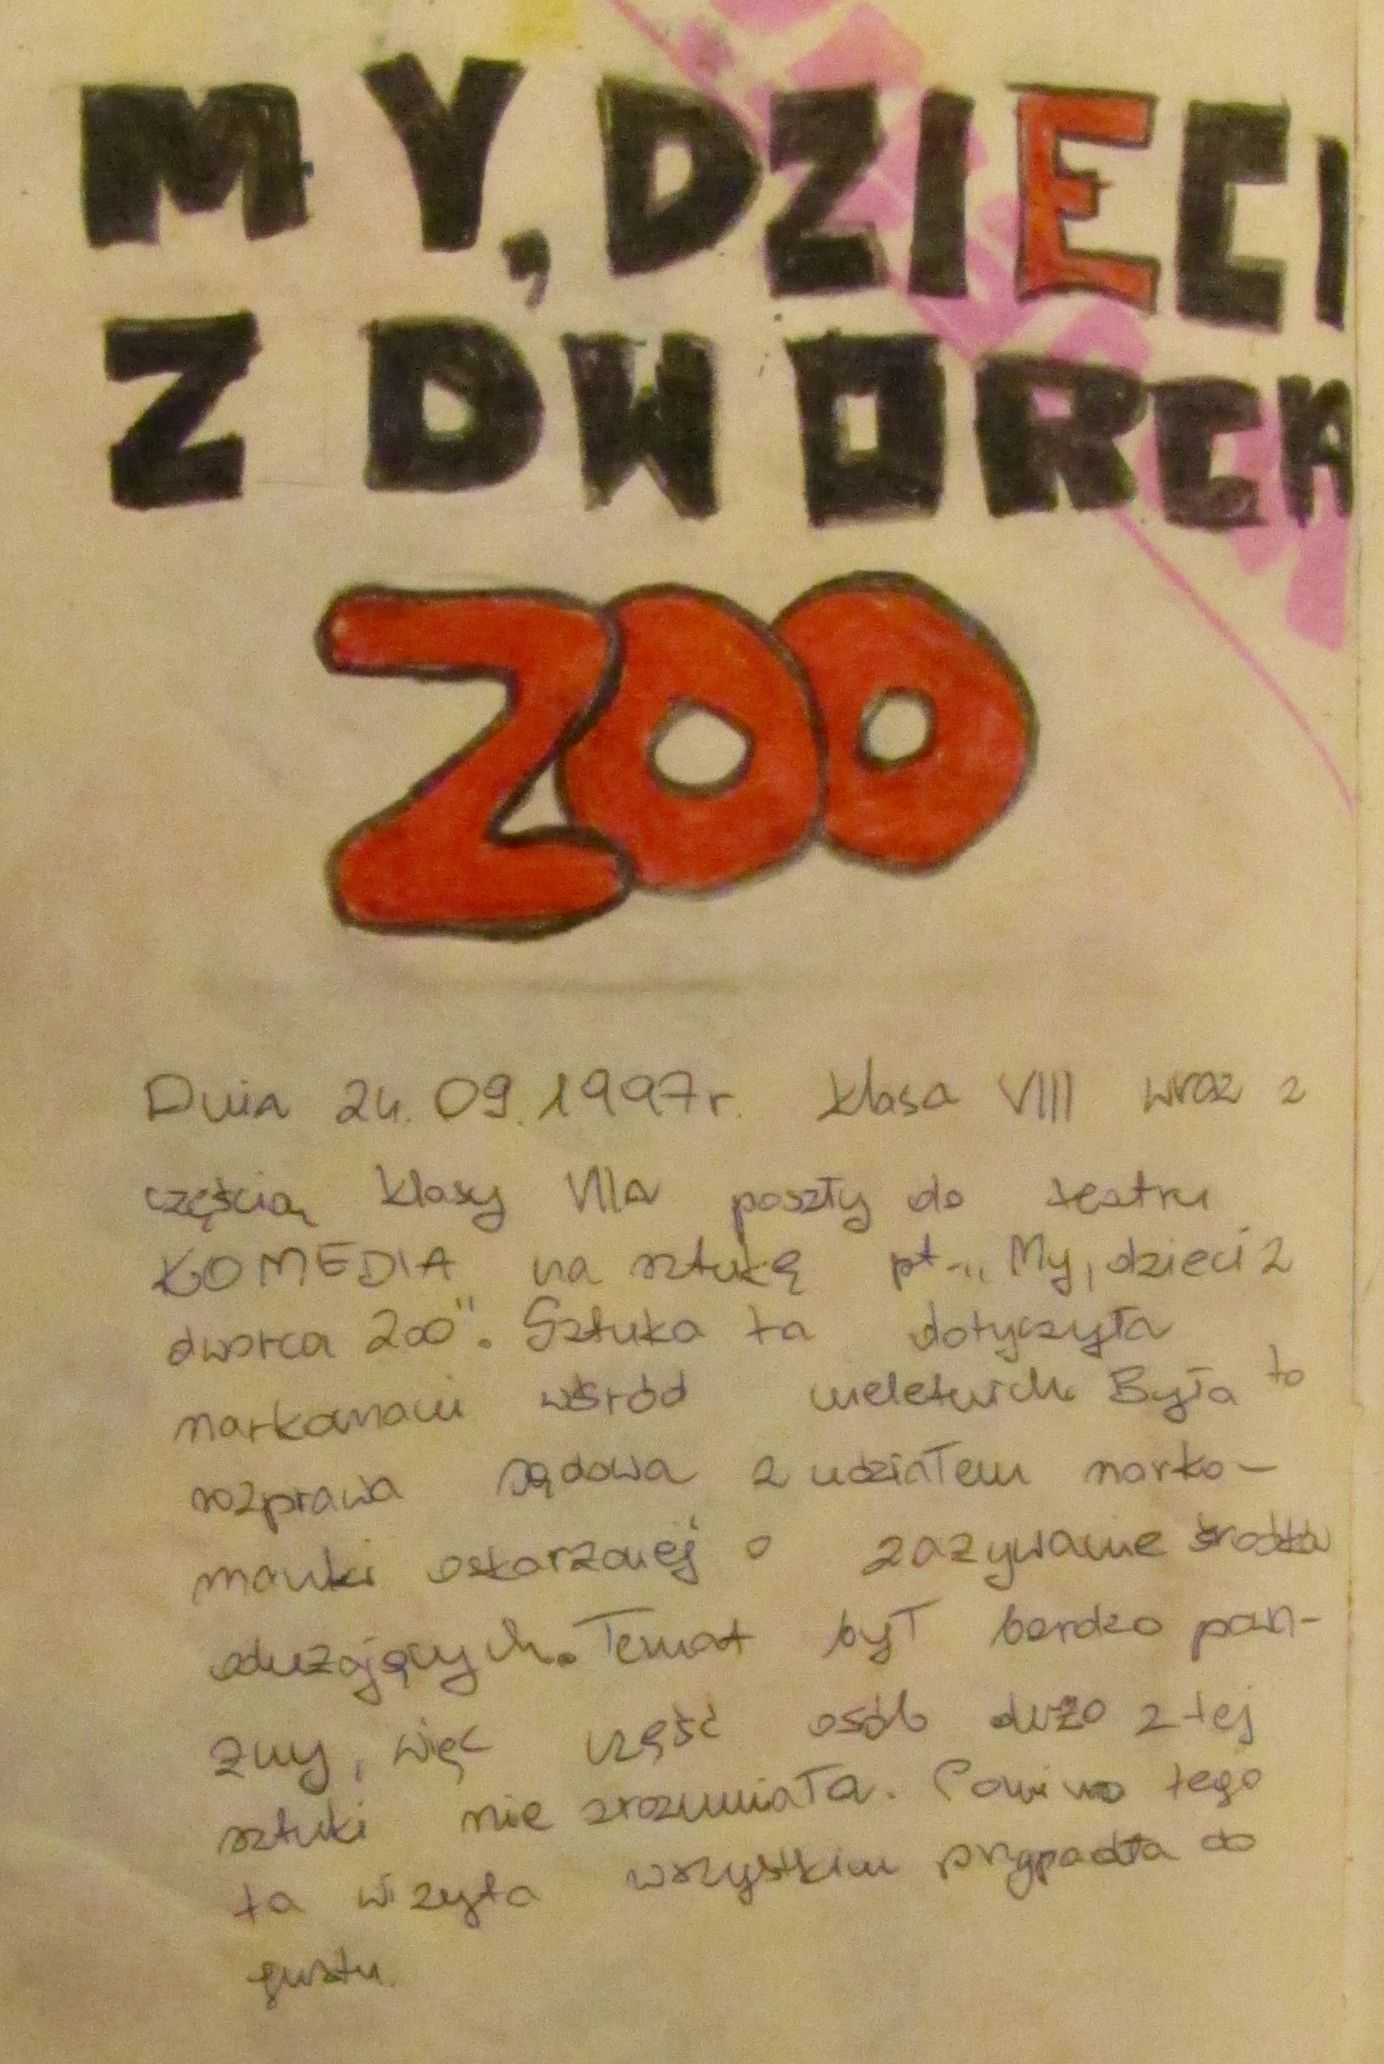 MY, DZIECI
Z DWORCA
ZOO
Dnia 24.09.1997r. klasa VIII wraz z
częścią klasy VIIa poszły do teatru
KOMEDIA na sztukę pt. „My, dzieci z
dworca Zoo". Sztuka ta dotyczyła
narkomanii wśród nieletnich. Była to
rozprawa sądowa z udziałem narko-
manki oskarżonej o zażywanie środków
odurzających. Temat był bardzo powa-
żny, więc część osób dużo z tej
sztuki nie zrozumiała. Pomimo tego
ta wizyta wszystkim przypadła do
gustu.